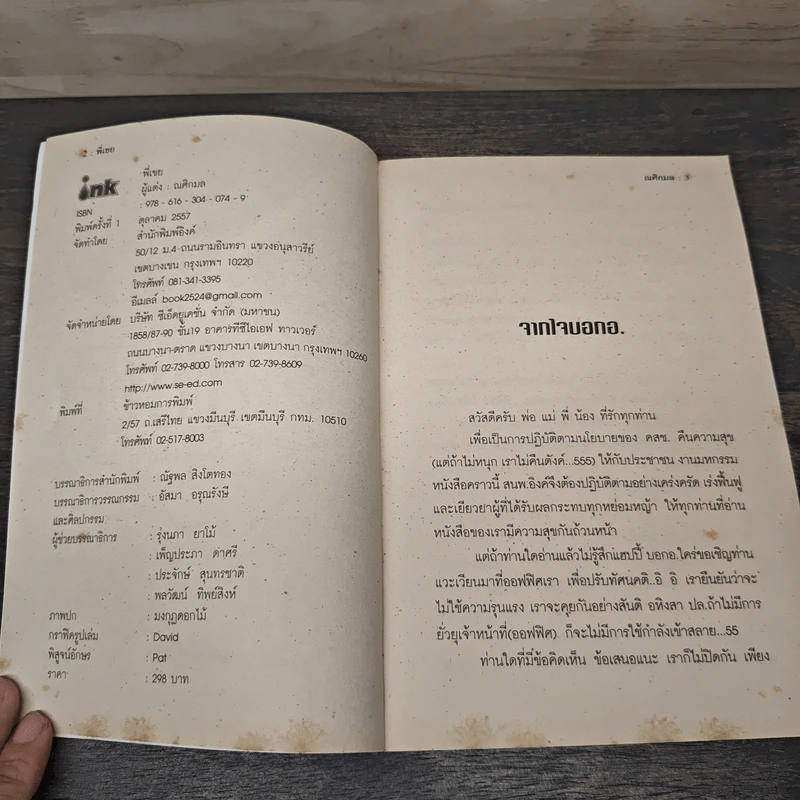 2 : พี่เขย
ink
พี่เขย
ผู้แต่ง : ณศิกมล
ISBN : 978 - 616 - 304 - 074 - 9
พิมพ์ครั้งที่ 1 ตุลาคม 2557
จัดทำโดย สำนักพิมพ์อิงค์
50/12 ม.4 ถนนรามอินทรา แขวงอนุสาวรีย์
เขตบางเขน กรุงเทพฯ 10220
โทรศัพท์ 081-341-3395
อีเมลล์ book2524@gmail.com
จัดจำหน่ายโดย บริษัท ซีเอ็ดยูเคชั่น จำกัด (มหาชน)
1858/87-90 ชั้น19 อาคารทีซีไอเอฟ ทาวเวอร์
ถนนบางนา-ตราด แขวงบางนา เขตบางนา กรุงเทพฯ 10260
โทรศัพท์ 02-739-8000 โทรสาร 02-739-8609
http://www.se-ed.com
พิมพ์ที่ ข้าวหอมการพิมพ์
2/57 ถ.เสรีไทย แขวงมีนบุรี เขตมีนบุรี กทม. 10510
โทรศัพท์ 02-517-8003
บรรณาธิการสำนักพิมพ์ : ณัฐพล สิงโตทอง
บรรณาธิการวรรณกรรม : อัสมา อรุณรังษี
และศิลปกรรม
ผู้ช่วยบรรณาธิการ : รุ่งนภา ยาโม้
: เพ็ญประภา ดาศรี
: ประจักษ์ สุนทรชาติ
: พลวัฒน์ ทิพย์สิงห์
ภาพปก : มงกุฎดอกไม้
กราฟิครูปเล่ม : David
พิสูจน์อักษร : Pat
ราคา : 298 บาท
ณศิกมล : 3
จากใจบอกอ.
สวัสดีครับ พ่อ แม่ พี่ น้อง ที่รักทุกท่าน
เพื่อเป็นการปฏิบัติตามนโยบายของ คสช. คืนความสุข
(แต่ถ้าไม่หนุก เราไม่คืนตังค์...555) ให้กับประชาชน งานมหกรรม
หนังสือคราวนี้ สนพ.อิงค์จึงต้องปฏิบัติตามอย่างเคร่งครัด เร่งฟื้นฟู
และเยียวยาผู้ที่ได้รับผลกระทบทุกหย่อมหญ้า ให้ทุกท่านที่อ่าน
หนังสือของเรามีความสุขกันถ้วนหน้า
แต่ถ้าท่านใดอ่านแล้วไม่รู้สึกแฮปปี้ บอกอ.ใคร่ขอเชิญท่าน
แวะเวียนมาที่ออฟฟิศเรา เพื่อปรับทัศนคติ..อิ อิ เรายืนยันว่าจะ
ไม่ใช้ความรุนแรง เราจะคุยกันอย่างสันติ อหิงสา ปล.ถ้าไม่มีการ
ยั่วยุเจ้าหน้าที่(ออฟฟิศ) ก็จะไม่มีการใช้กำลังเข้าสลาย...55
ท่านใดที่มีข้อคิดเห็น ข้อเสนอแนะ เราก็ไม่ปิดกัน เพียง